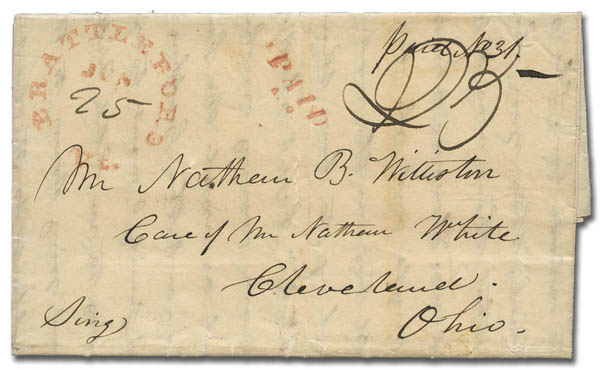 BRATTLEBORO
JUN
25
Vt.
PAID
Paid No 31
25
Mr Nathan B. Williston
Care of Mr Nathan White
Cleveland.
Ohio.
Sing